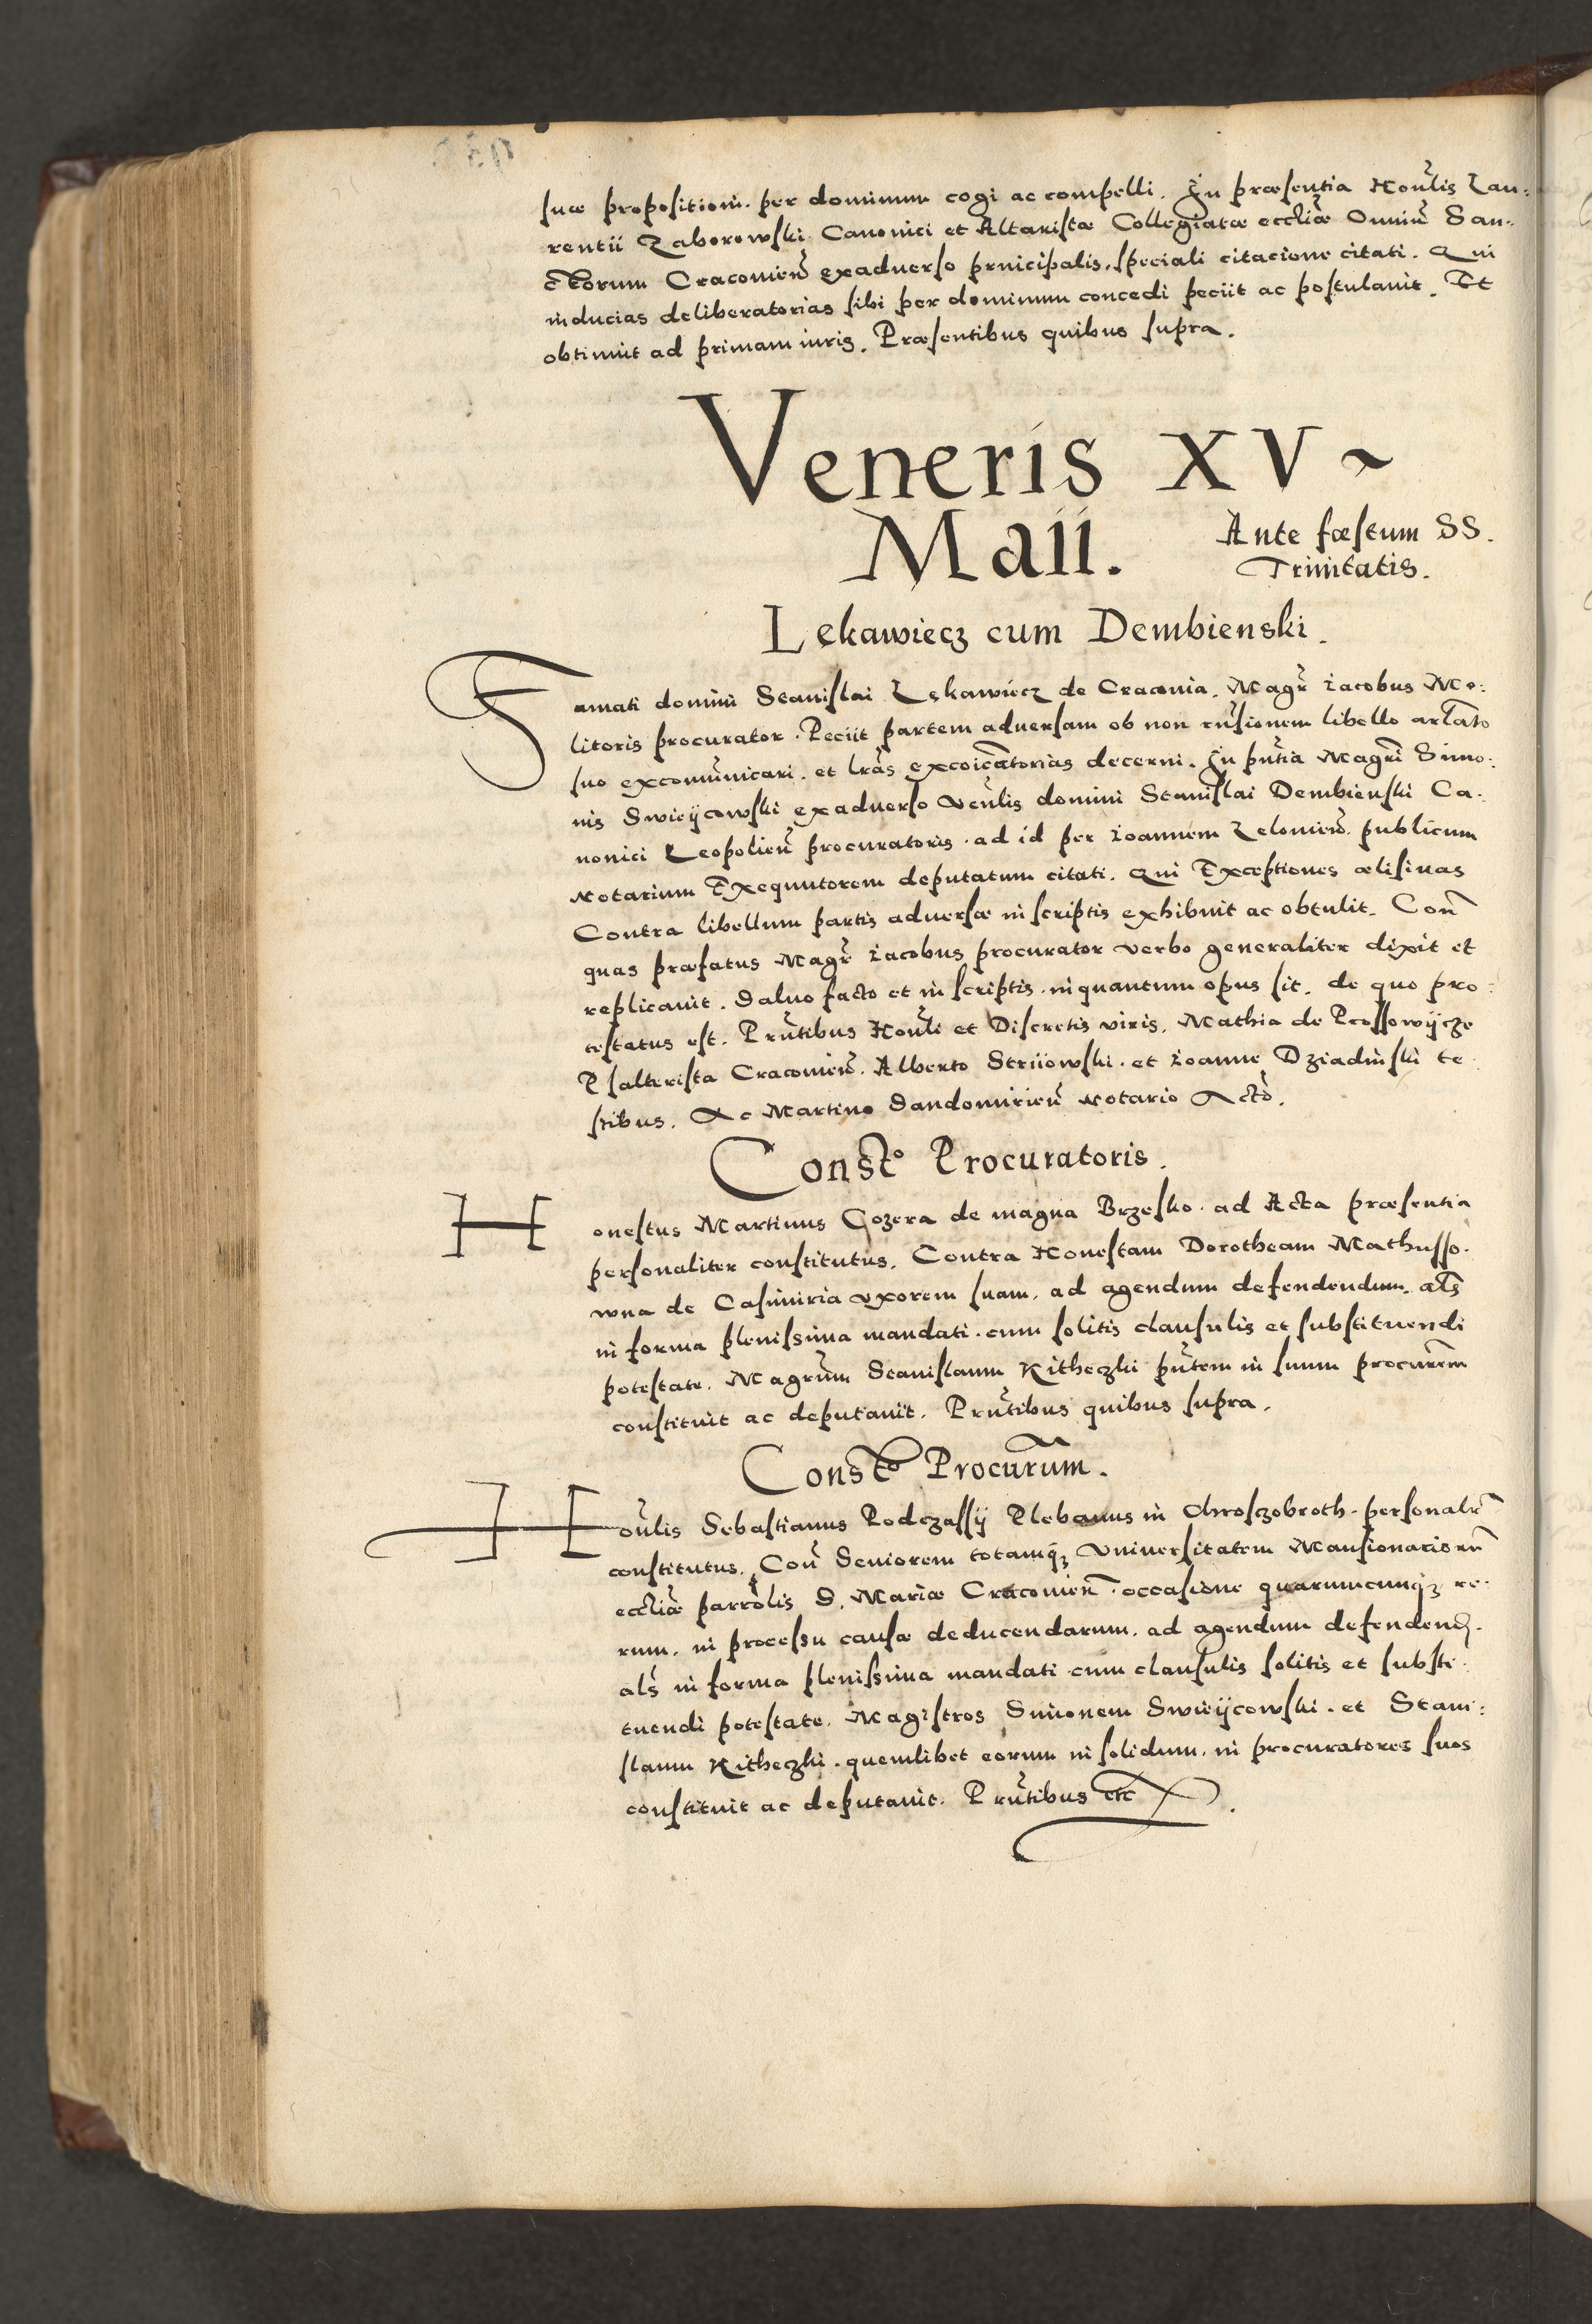 suæ propositioni. per dominum cogi ac compelli. In præsentia Honꝛ̃lis Lau:
rentii Zaborowski Canonici et Altaristæ Collegiatæ ecclĩæ Omniũ San-
ctorum Cracovieñ exadverso principalis, speciali citacione citati. Qui
inducias deliberatorias sibi per dominum concedi peciit ac postulavit. Et
obtinuit ad primam iuris. Præsentibus quibus supra.
Veneris XV ~
Maii.
Ante fæstum SS.
Trinitatis.
Lękawiecz cum Dembienski.
Famati domini Stanislai Lękawiecz de Cracovia. Magr̃ Iacobus Mo:
litoris procurator. Peciit partem adversam ob non rñsionem libello arlãto
suo excomũnicari. et lrãs excoicãtorias decerni. In pñtia Magrĩ Simo:
nis Swieÿcowski exadverso Veñlis domini Stanislai Dembienski Ca-
nonici Leopolieñ procuratoris. ad id per Ioannem Zelonieñ publicum
Notarium Exequutorem deputatum citati. Qui Exceptiones ælisivas
Contra libellum partis adversæ in scriptis exhibuit ac obtulit. Coñ
quas præfatus Magr̃ Iacobus procurator verbo generaliter dixit et
replicavit. Salvo facto et in scriptis. inquantum opus sit. de quo pro:
testatus est. Prñtibus Honꝛ̃li et Discretis viris. Mathia de Prossowÿcze
Psalterista Cracovieñ. Alberto Striiowski. et Ioanne Dziadinski te
stibus. Ac Martino Sandomirieñ Notario Actõ.
Const° Procuratoris.
Honestus Martinus Cozera de magna Brzesko. ad Acta præsentia
personaliter constitutus. Contra Honestam Dorotheam Mathusso-
wna de Casimiria uxorem suam. ad agendum defendendum. als̃
in forma plenissima mandati. cum solitis clausulis et substituendi
potestate. Magrũm Stanislaum Kitheczki pñtem in suum procurẽm
constituit ac deputavit. Prñtibus quibus supra.
Const° Procurũm.
Hoñlis Sebastianus Podczassÿ Plebanus in Chroszobroth. personalr̃
constitutus. Coñ Seniorem totamq̃ꝫ Universitatem Mansionariorũ
ecclĩæ parrõlis S. Mariæ Cracovieñ. occasione quarumcunqꝫ re-
rum. in processu causæ deducendarum. ad agendum defendend.
als̃ in forma plenissima mandati cum clausulis solitis et substi-
tuendi potestate. Magistros Simonem Swieÿcowski. et Stani:
slaum Kitheczki. quemlibet eorum in solidum. in procuratores suos
constituit ac deputavit. Prñtibus etc.